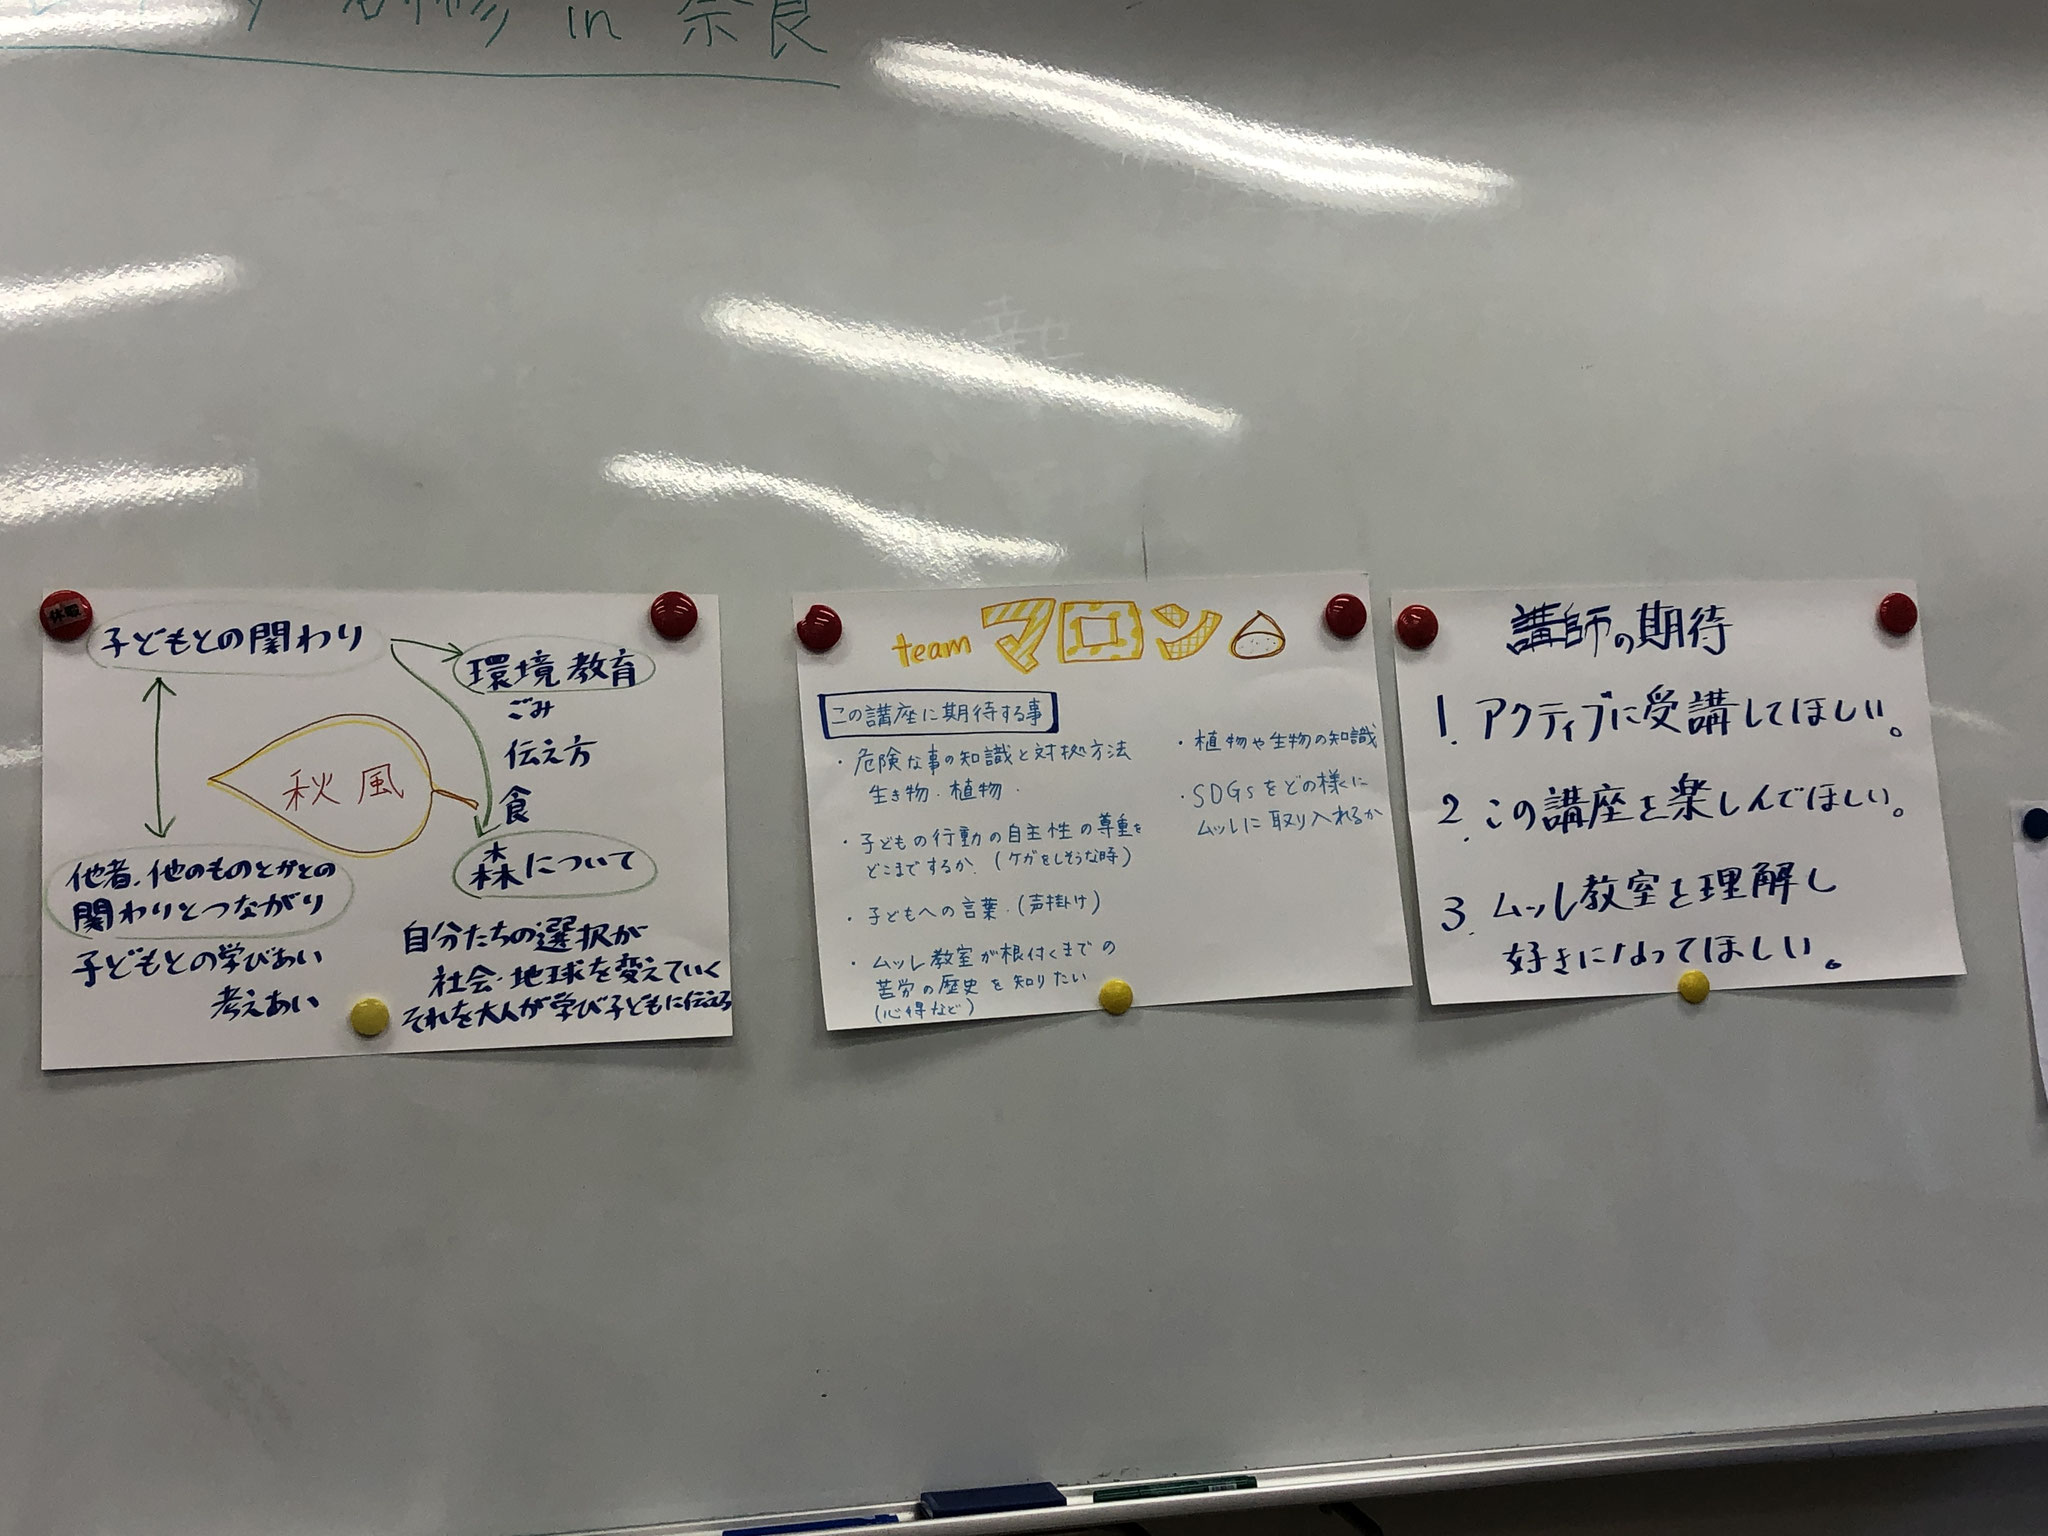 研修 in 奈良
休暇
子どもとの関わり
環境教育
ごみ
伝え方
食
森について
秋風
他者、他のものとかとの
関わりとつながり
子どもとの学びあい
考えあい
自分たちの選択が
社会・地球を変えていく
それを大人が学び子どもに伝える
team マロン
この講座に期待する事
・危険な事の知識と対拠方法
生き物・植物・
・子どもの行動の自主性の尊重を
どこまでするか。(ケガをしそうな時)
・子どもへの言葉・(声掛け)
・ムッレ教室が根付くまでの
苦労の歴史を知りたい
(心得など)
・植物や生物の知識
・SDGsをどの様に
ムッレに取り入れるか
講師の期待
1. アクティブに受講してほしい。
2. この講座を楽しんでほしい。
3. ムッレ教室を理解し
好きになってほしい。